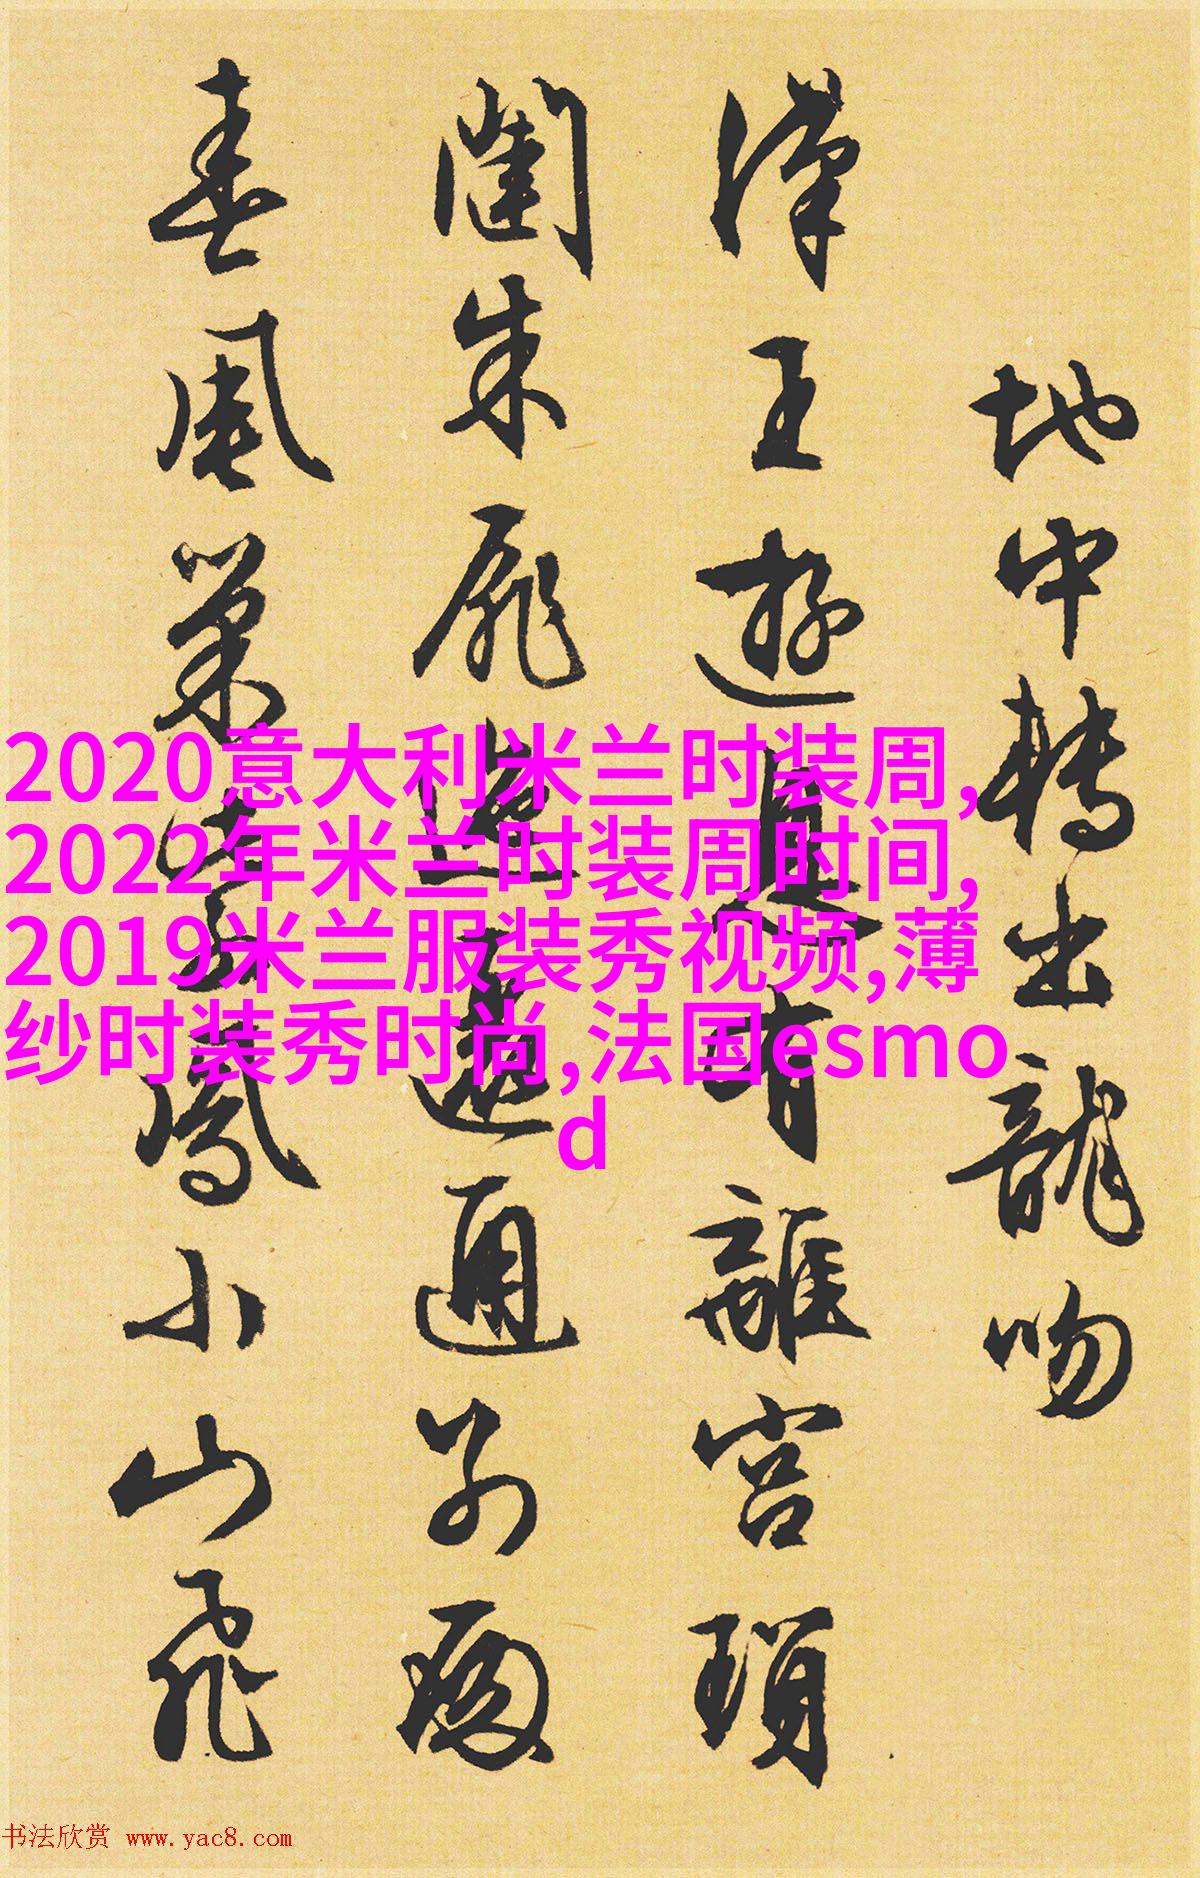 地中轉出龍吻
漢王遊有離宮瑣
闥朱扉迤邐通別殿
春風巢紫鳳小山飛
2020意大利米兰时装周,
2022年米兰时装周时间,
2019米兰服装秀视频,薄
纱时装秀时尚,法国esmo
d
书法欣赏 www.yac8.com